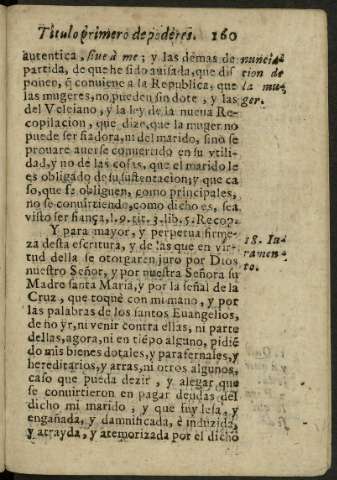 Titulo primero de poderes. 160
autentica, siue à me; y las demas de
partida, de que he sido auisada, que dis
ponen, q̃ conuiene a la Republica, que
las mugeres, no pueden sin dote, y las
del Veleiano, y la ley de la nueva Re-
copilacion, que dize, que la muger no
puede ser fiadora, ni del marido, sino se
prouare auerse conuertido en su vtili-
dad, y no de las cosas, que el marido le
es obligado de su sustentacion; y que ca
so, que se obliguen, como principales,
no se conuirtiendo, como dicho es, sea
visto ser fiança, l. 9. tit. 3. lib. 5. Recop.
Y para mayor, y perpetua firme-
za desta escritura, y de las que en vir-
tud della se otorgaren juro por Dios
nuestro Señor, y por nuestra Señora su
Madre santa Maria, y por la señal de la
Cruz, que toquè con mi mano, y por
las palabras de los santos Euangelios,
de no yr, ni venir contra ellas, ni parte
dellas, agora, ni en tiẽpo alguno, pidiẽ
do mis bienes dotales, y parafernales, y
hereditarios, y arras, ni otros algunos,
caso que pueda dezir, y alegar que
se conuirtieron en pagar deudas del
dicho mi marido, y que fuy lesa, y
engañada, y damnificada, è induzida,
y atrayda, y atemorizada por el dicho
nuncia-
cion de
la mu-
ger.
18. Iu-
ramen-
to.